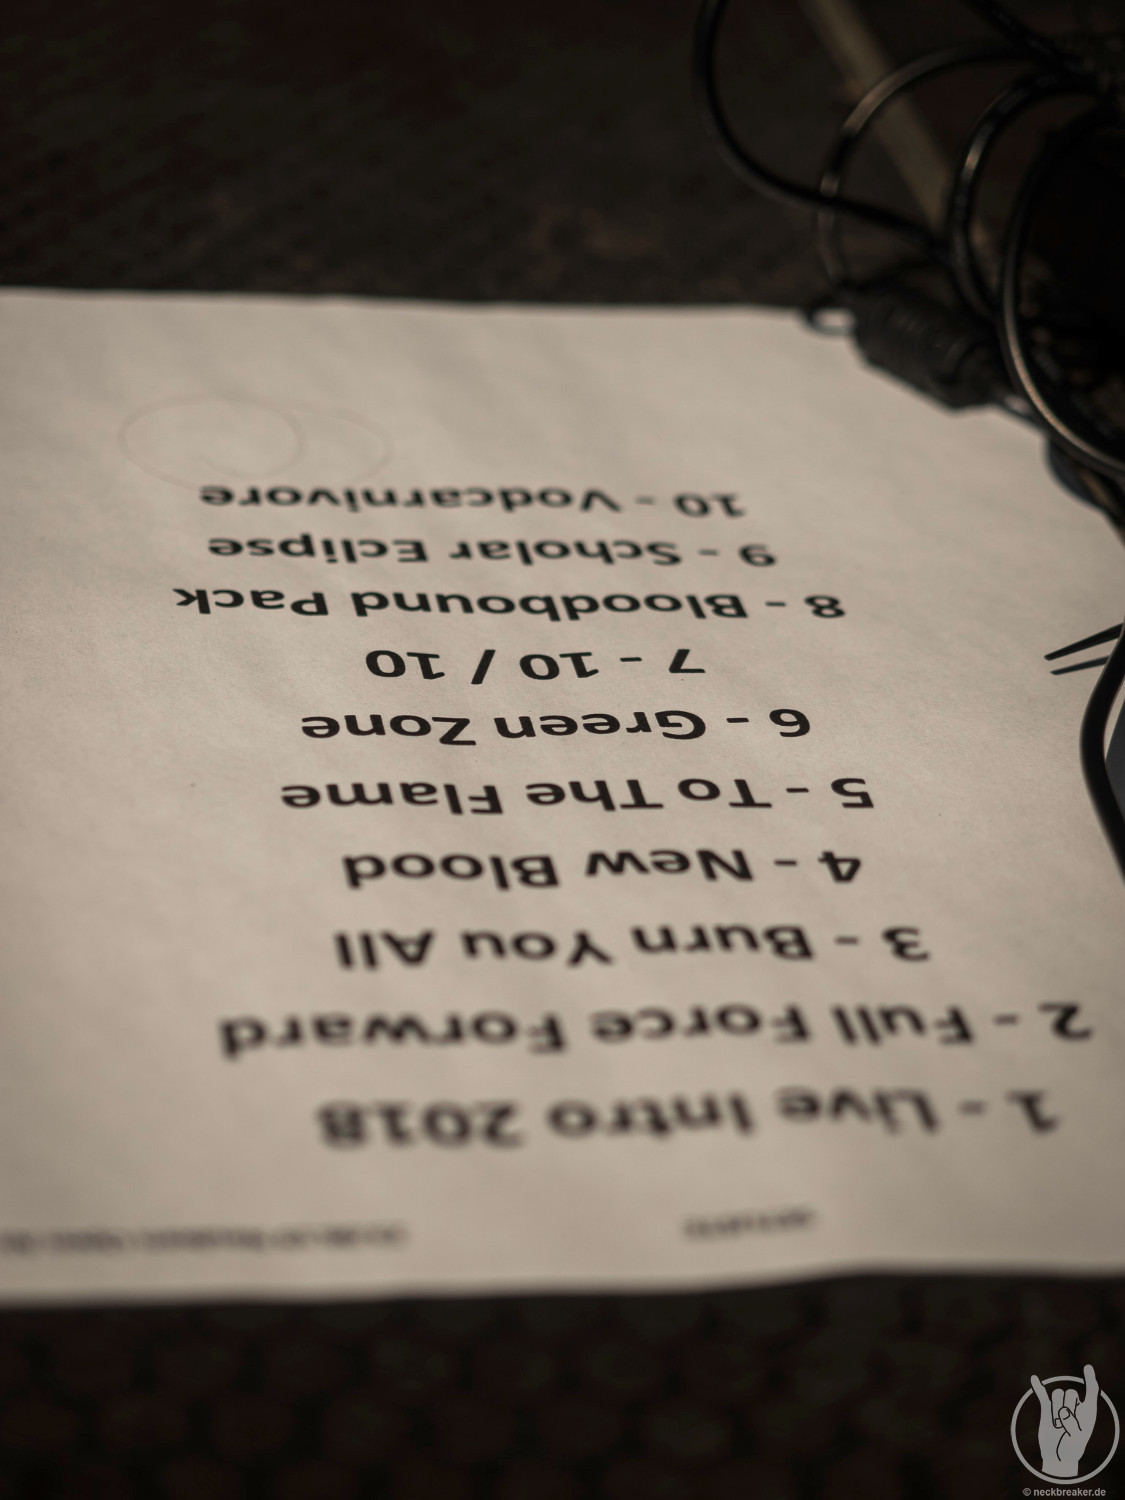 1 - Live Intro 2018
2 - Full Force Forward
3 - Burn You All
4 - New Blood
5 - To The Flame
6 - Green Zone
7 - 10 / 10
8 - Bloodbound Pack
9 - Scholar Eclipse
10 - Vodcarnivore
© neckbreaker.de